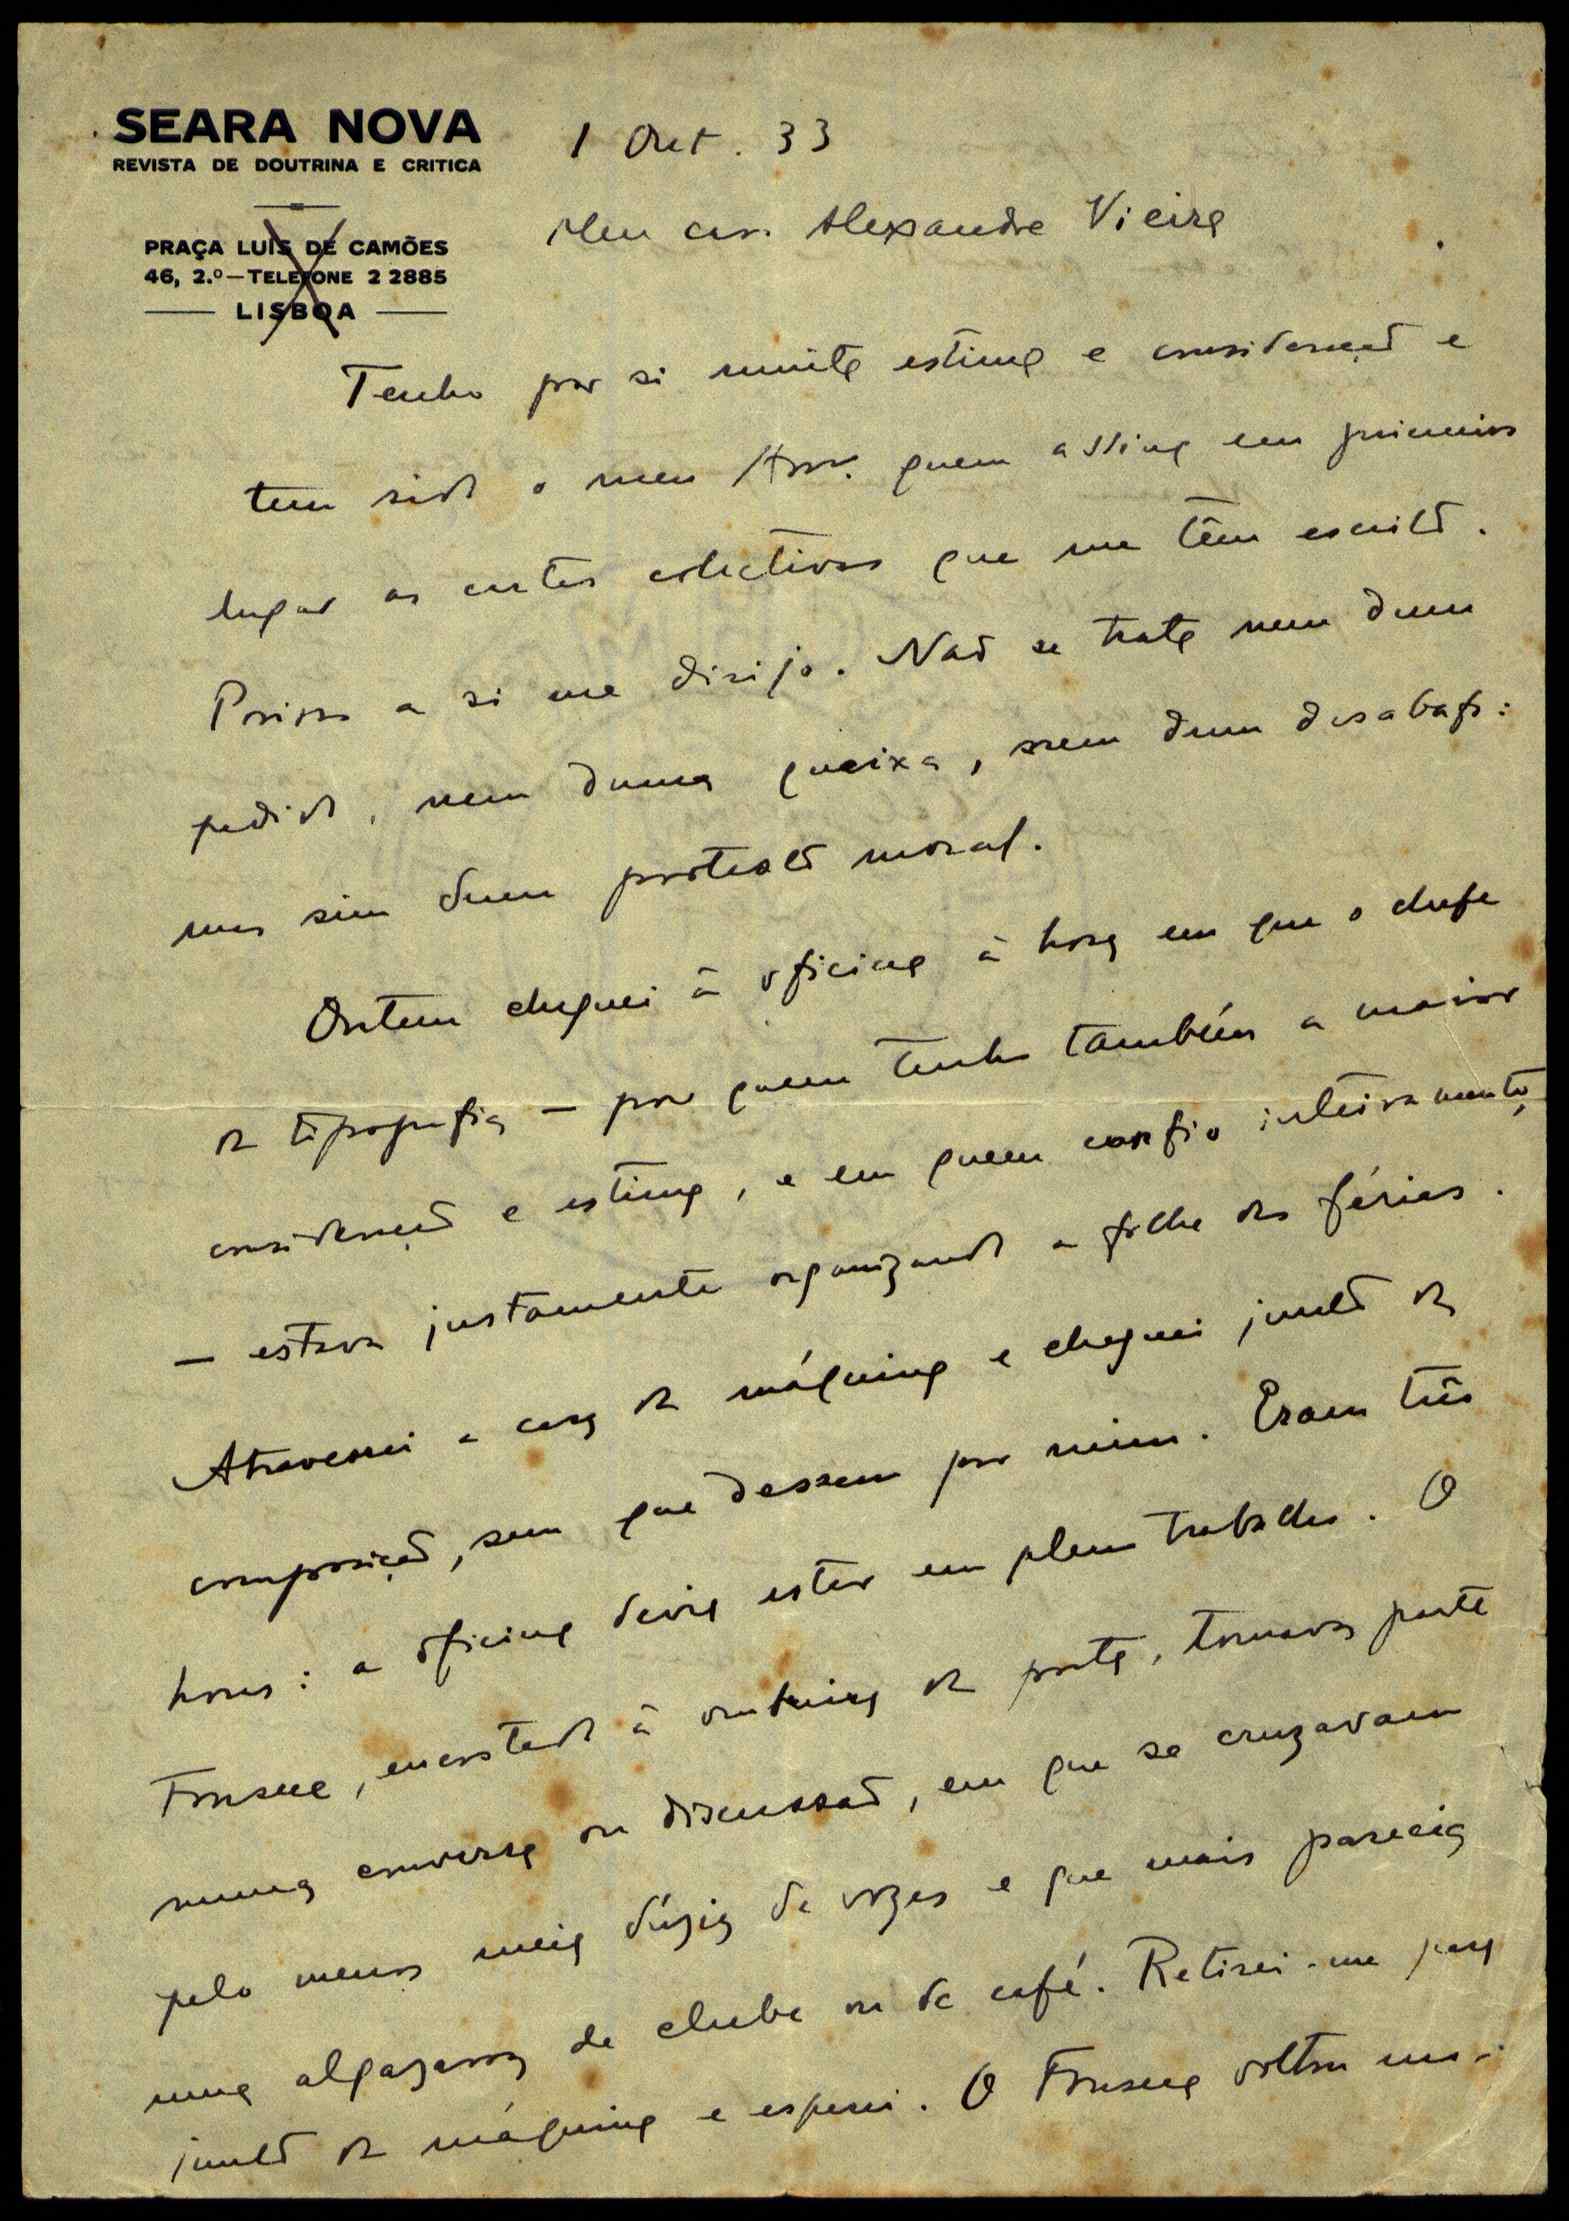 SEARA NOVA
REVISTA DE DOUTRINA E CRITICA
PRAÇA LUIS DE CAMÕES
46, 2.º—TELEFONE 2 2885
LISBOA
1 Out. 33
Meu caro Alexandre Vieira
Tenho por si muita estima e consideração e
tem sido o meu Amº. quem assina em primeiro
lugar as cartas colectivas que me têm escrito.
Por isso a si me dirijo. Não se trata nem dum
pedido, nem duma queixa, nem dum desabafo:
mas sim dum protesto moral.
Ontem cheguei à oficina à hora em que o chefe
da tipografia — por quem tenho também a maior
consideração e estima, e em quem confio inteiramente,
— estava justamente organizando a folha das férias.
Atravessei a casa da máquina e cheguei junto da
composição, sem que dessem por mim. Eram três
horas: a oficina devia estar em pleno trabalho. O
Fonseca, encostado à ombreira da porta, tomava parte
numa conversa ou discussão, em que se cruzavam
pelo menos meia dúzia de vozes e que mais parecia
uma algazarra de clube ou de café. Retirei-me para
junto da máquina e esperei. O Fonseca voltou